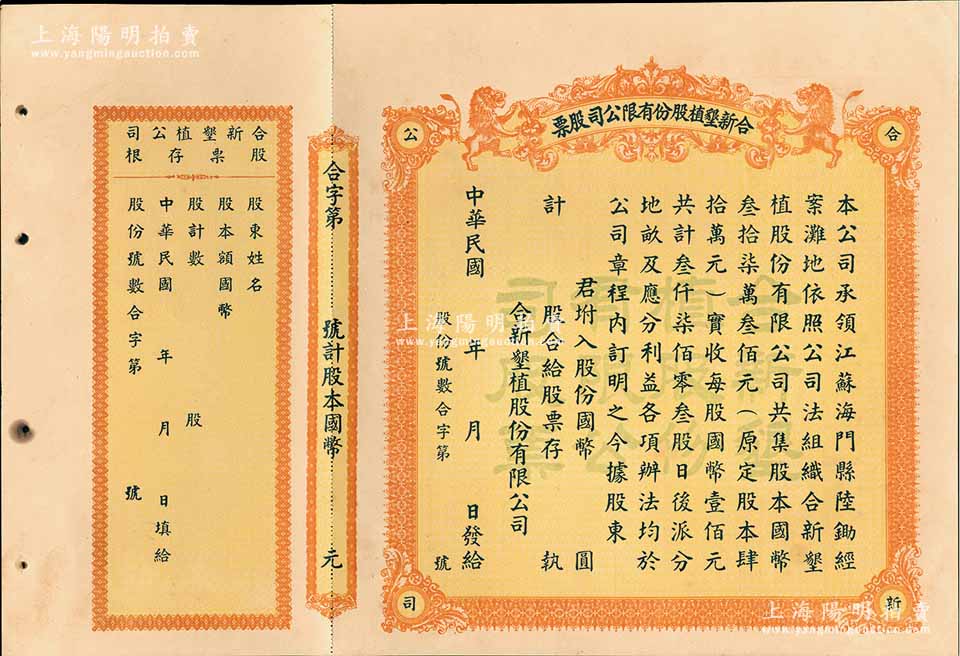 上海陽明拍賣
www.yangmingauction.com
合新墾植股份有限公司股票
合
新
公
司
本公司承領江蘇海門縣陸鋤經
案灘地依照公司法組織合新墾
植股份有限公司共集股本國幣
叁拾柒萬叁佰元(原定股本肆
拾萬元)實收每股國幣壹佰元
共計叁仟柒佰零叁股日後派分
地畝及應分利益各項辦法均於
公司章程內訂明之今據股東
君坿入股份國幣 圓
計 股合給股票存 執
合新墾植股份有限公司
中華民國 年 月 日發給
股份號數合字第 號
合新墾植股份有限公司股票
合字第 號計股本國幣 元
合新墾植公司
股票存根
股東姓名
股本額國幣
股計數 股
中華民國 年 月 日填給
股份號數合字第 號
上海陽明拍賣
www.yangmingauction.com
上海陽明拍賣
www.yangmingauction.com